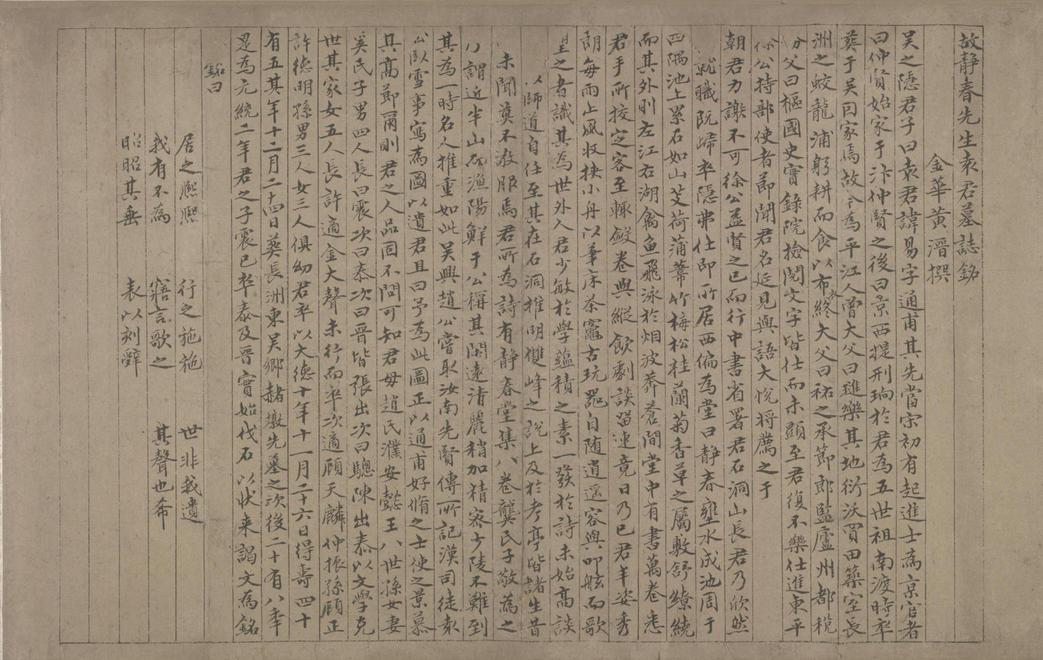 故靜春先生袁君墓誌銘
金華黃溍撰
吳之隱君子曰袁君諱易字通甫其先當宋初有起進士為京官者
曰仲賢始家于汴仲賢之後曰景西提刑珦於君為五世祖南渡時率
葬于吳因家焉故今為平江人曾大父曰璡樂其地衍沃買田築室長
洲之蛟龍浦躬耕而食以布終大父曰祐之承節郎監廬州都稅
父曰樞國史實錄院檢閱文字皆仕而未顯至君復不樂仕進東平
公持部使者節聞君名延見與語大悅將薦之于
朝君力謝不可徐公益賢之已而行中書省署君石洞山長君乃欣然
就職既歸卒隱弗仕即所居西偏為堂曰靜春壅水成池周于
四隅池上累石如山芰荷蒲葦竹梅松桂蘭菊香草之屬敷舒繚繞
而其外則左江右湖禽魚飛泳於烟波莽蒼間堂中有書萬卷悉
君手所挍定客至輒斂卷與縱飲劇談留連竟日乃已君丰姿秀
朗每雨止風收挾小舟以筆床茶竈古玩器自随逍遥容與叩舷而歌
望之者識其為世外人君少敏於學蘊積之素一發於詩未始高談
以師道自任至其在石洞推明雙峰之說上及於考亭皆諸生昔
未聞莫不敬服焉君所為詩有靜春堂集八卷龔氏子敬為之
謂近半山而漁陽鮮于公稱其閑遠清麗稍加精密少陵不難到
其為一時名人推重如此吳興趙公嘗取汝南先賢傳所記漢司徒袁
公臥雪事寫為圖以遺君且曰予為此圖正以通甫好脩之士使之景慕
其高節爾則君之人品固不問可知君母趙氏濮安懿王八世孫女妻
吳氏子男四人長曰震次曰泰次曰晉皆張出次曰驄陳出泰以文學克
世其家女五人長許適金大聲未行而卒次適顧天麟仲振孫顧正
許德明孫男三人女三人俱幼君卒以大德十年十一月二十六日得壽四十
有五其年十二月二十四日葬長洲東吳鄉赭墩先墓之次後二十有八年
是為元統二年君之子震已卒泰及晉實始伐石以狀来謁文為銘
銘曰
居之熙熙 行之施施 世非我遺
我有不為 寤言歌之 其聲也希
昭昭其垂 表以刻辭